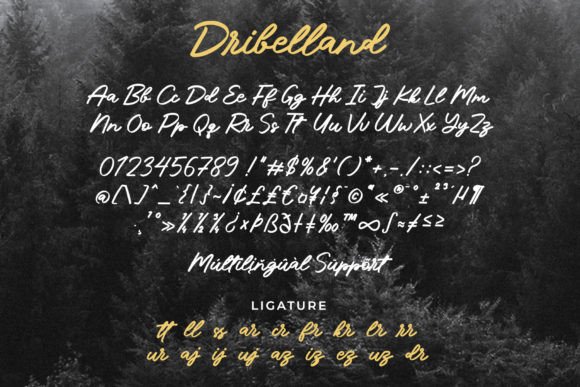 Dribelland
Aa Bb Cc Dd Ee Ff Gg Hh Ii Jj Kk Ll Mm
Nn Oo Pp Qq Rr Ss Tt Uu Vv Ww Xx Yy Zz
0123456789 !"#$%&'()*+,-./:;<=>?
@[\]^_`{|}~¡¢£€¥¦§¨©ª«®¯°±²³´µ¶
·¸¹º»¼½¾¿×Þßðł‡‰™∞∫≈≠≤≥
Múltilingùàl Support
LIGATURE
tt ll ss ar ir fr kr lr rr
ur aj ij uj az iz ez uz dr